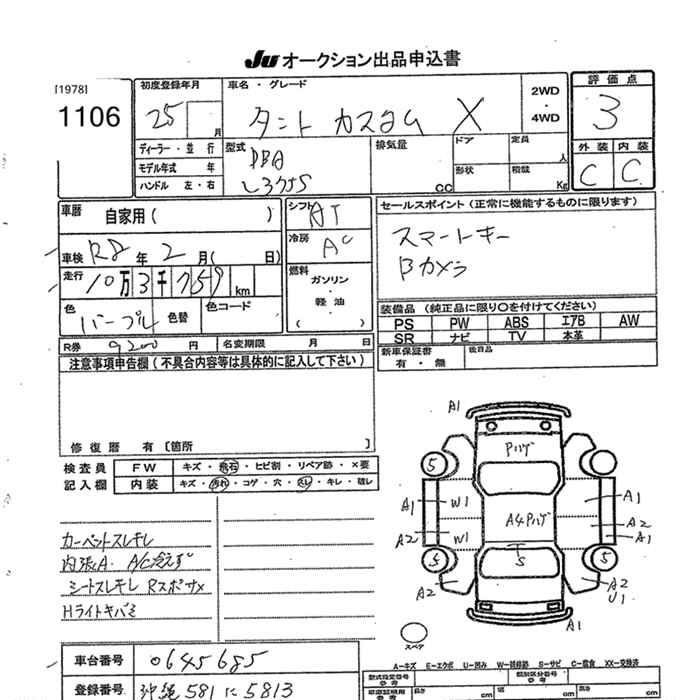 JU オークション出品申込書
[1978]
1106
初度登録年月
25
月
車名 ・ グレード
タント カスタム X
2WD
・
4WD
評 価 点
3
ディーラー・並 行
モデル年式 年
ハンドル 左・右
型式
DBA
L375S
排気量
CC
ドア
定員
人
形状
積載
Kg
外 装
内 装
C
C
車歴
自家用 ( )
車検 R8 年 2 月 ( 日)
走行 10万3千759 km
色
パープル
色替
色コード
R券 9200 円
名変期限 月 日
シフト
AT
冷房
AC
燃料
ガソリン
・
軽 油
・
( )
セールスポイント (正常に機能するものに限ります)
スマートキー
Bカメラ
装備品 (純正品に限り○を付けてください)
PS PW ABS エアB AW
SR ナビ TV 本革
新車保証書
有 ・ 無
後日品
注意事項申告欄 (不具合内容等は具体的に記入して下さい)
修 復 歴 有 [箇所 ]
検 査 員
記 入 欄
F W
キズ ・ 飛石 ・ ヒビ割 ・ リペア跡 ・ ×要
内 装
キズ ・ 汚れ ・ コゲ ・ 穴 ・ スレ ・ キレ ・ 破レ
カーペットスレキレ
内張A. A/C冷えず
シートスレキレ
Hライトキバミ
A1
Pハゲ
5
A1
W1
A1
A4Pハゲ
A2
W1
A2
A1
5
S
5
A2
A2
U1
A1
スペア
A-キズ E-エクボ U-凹み W-補修跡 S-サビ C-腐食 XX-交換済
車台番号 0645685
登録番号 沖縄 581 に 5813
型式指定番号
類別区分番号
長さ cm
幅 cm
高さ cm